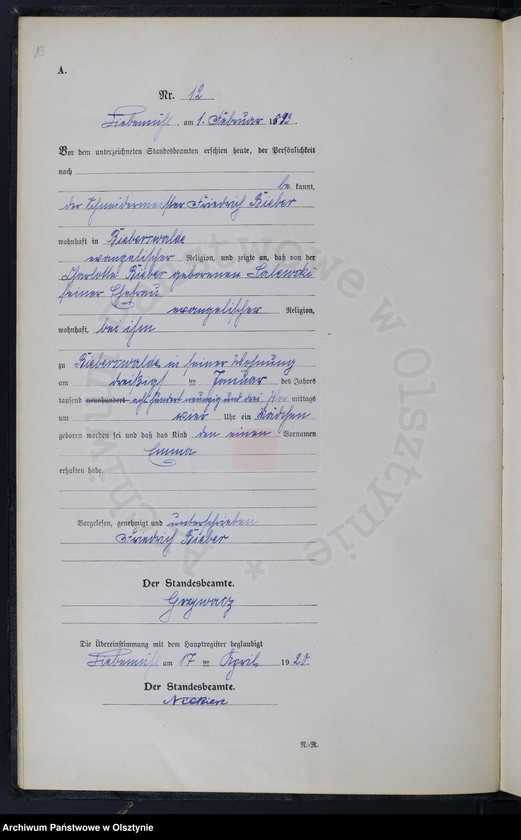 A.
Nr. 12
Liebemühl am 1. Februar 1893.
Vor dem unterzeichneten Standesbeamten erschien heute, der Persönlichkeit
nach
be kannt,
der Schneidermeister Friedrich Bieber
wohnhaft in Bieberswalde
evangelischer Religion, und zeigte an, daß von der
Charlotte Bieber geborenen Salewski
seiner Ehefrau
evangelischer Religion,
wohnhaft bei ihm
zu Bieberswalde in seiner Wohnung
am dreißigst im Januar des Jahres
tausend neunhundert achthundert neunzig und drei Vor mittags
um vier Uhr ein Mädchen
geboren worden sei und daß das Kind den einen Vornamen
Emma
erhalten habe.
Vorgelesen, genehmigt und unterschrieben
Friedrich Bieber
Der Standesbeamte.
Grzywacz
Die Übereinstimmung mit dem Hauptregister beglaubigt
Liebemühl am 17 ten April 1920.
Der Standesbeamte.
N.-R.
Archiwum Państwowe w Olsztynie